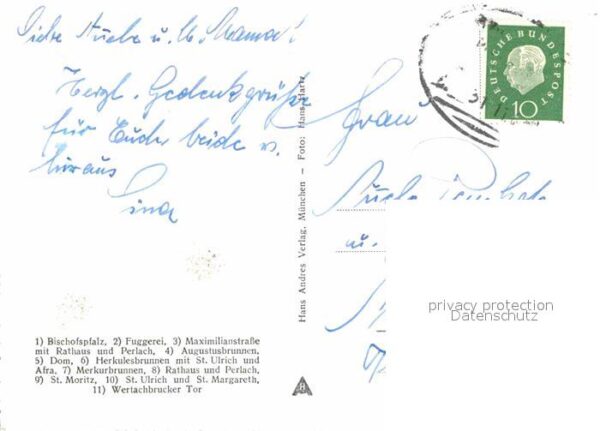 Liebe u. lb. Mama!
Herzl. Gedenkgrüße
für Euch beide v.
uns
Lina
Frau
u.
DEUTSCHE BUNDESPOST
10
Hans Andres Verlag, München – Foto: Hans Hartz
privacy protection
Datenschutz
1) Bischofspfalz, 2) Fuggerei, 3) Maximilianstraße
mit Rathaus und Perlach, 4) Augustusbrunnen,
5) Dom, 6) Herkulesbrunnen mit St. Ulrich und
Afra, 7) Merkurbrunnen, 8) Rathaus und Perlach,
9) St. Moritz, 10) St. Ulrich und St. Margareth,
11) Wertachbrucker Tor